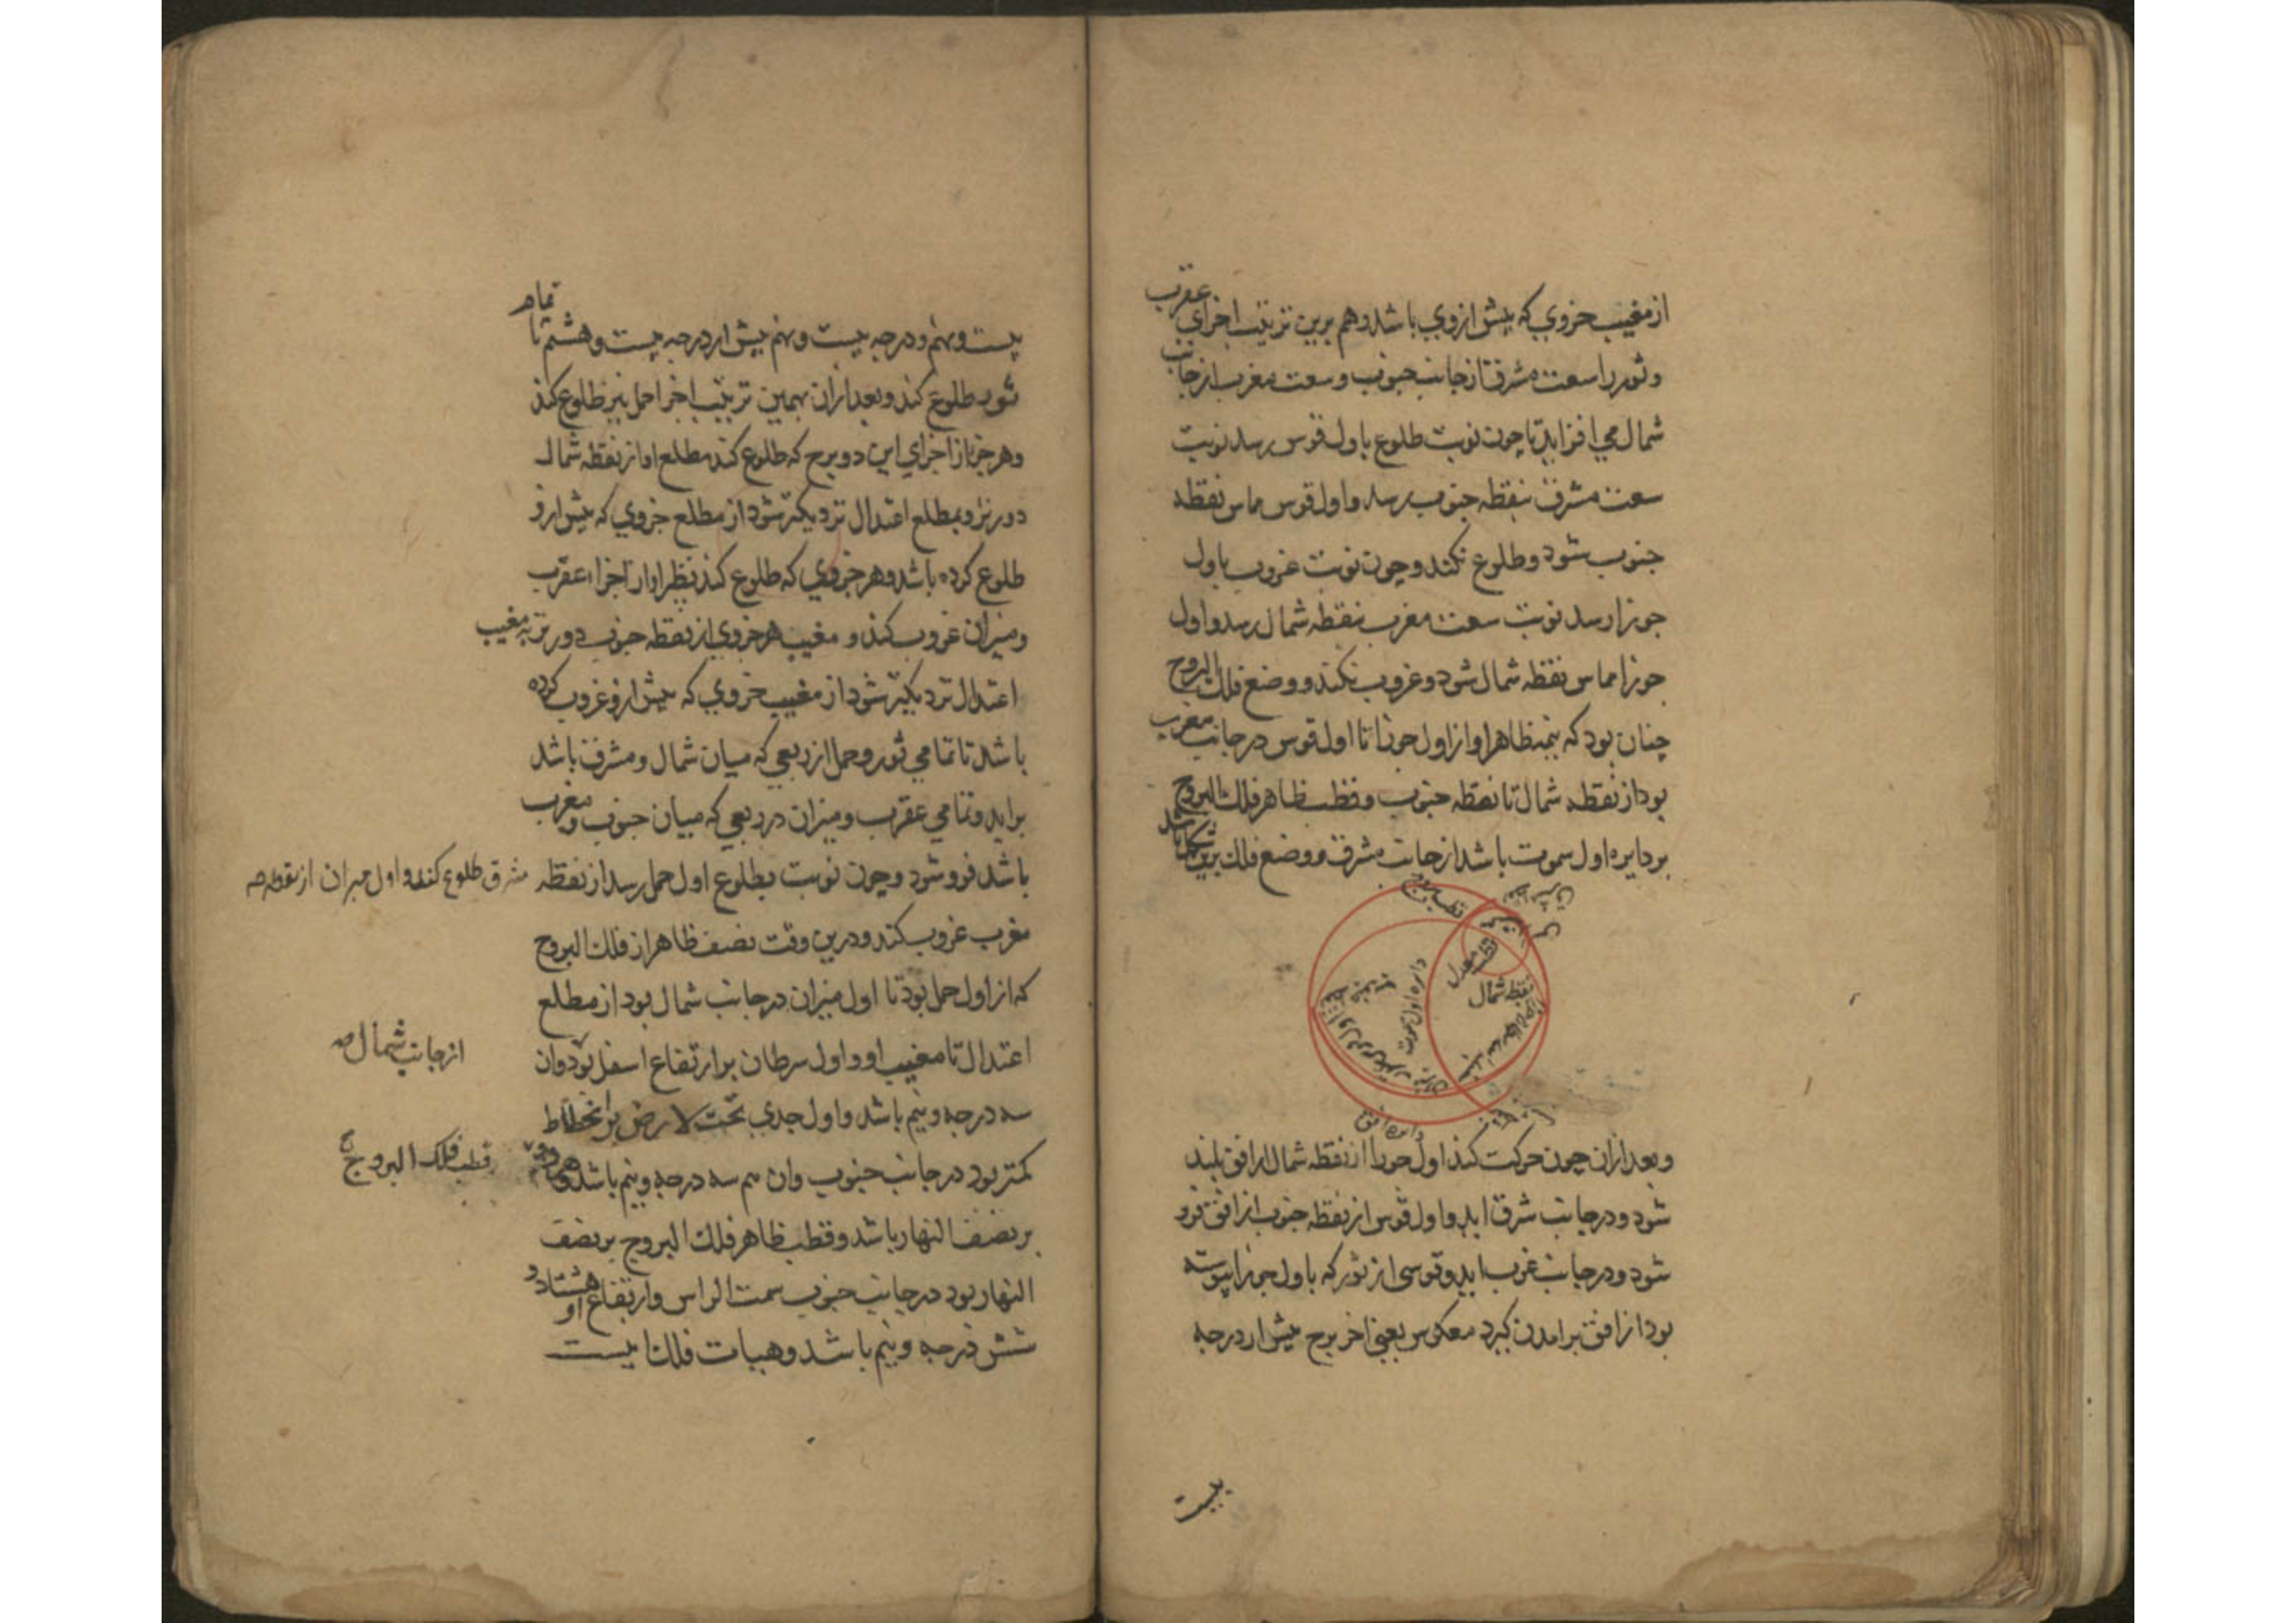 از مغیب جزوی که پیش از وی باشد و هم برین ترتیب اجزای عقرب
و ثور را سعت مشرق از جانب جنوب و سعت مغرب از جانب
شمال می افزاید تا چون نوبت طلوع باول قوس رسد نوبت
سعت مشرق بنقطه جنوب رسد و اول قوس مماس نقطه
جنوب شود و طلوع نکند و چون نوبت غروب باول
جوزا رسد نوبت سعت مغرب بنقطه شمال رسد و اول
جوزا مماس نقطه شمال شود و غروب نکند و وضع فلک البروج
چنان بود که نیمه ظاهر او از اول جوزا تا اول قوس در جانب مغرب
بود از نقطه شمال تا نقطه جنوب و قطب ظاهر فلک البروج
بر دایره اول سموت باشد از جانب مشرق و وضع فلک برین شکل باشد
قطب معدل
نقطه شمال
دایره اول سموت
دایره افق
و بعد ازان چون حرکت کند اول جوزا از نقطه شمال از افق بلند
شود و در جانب شرق اید و اول قوس از نقطه جنوب از افق فرو
شود و در جانب غرب اید و قوسی از ثور که باول جوزا پیوسته
بود از افق برامدن کیرد معکوس یعنی اخر برج پیش از درجه
بیست
بیست و نهم و درجه بیست و نهم پیش از درجه بیست و هشتم تا تمام
ثور طلوع کند و بعد ازان بهمین ترتیب اجزا حمل نیز طلوع کند
و هر جزء از اجزای این دو برج که طلوع کند مطلع او از نقطه شمال
دورتر و بمطلع اعتدال نزدیکتر شود از مطلع جزوی که پیش ازو
طلوع کرده باشد و هر جزوی که طلوع کند نظیر او از اجزاء عقرب
و میزان غروب کند و مغیب هر جزوی از نقطه جنوب دورتر به مغیب
اعتدال نزدیکتر شود از مغیب جزوی که پیش ازو غروب کرده
باشد تا تمامی ثور و حمل از ربعی که میان شمال و مشرق باشد
براید و تمامی عقرب و میزان در ربعی که میان جنوب و مغرب
باشد فرو شود و چون نوبت بطلوع اول حمل رسد از نقطه
مشرق طلوع کند و اول میزان از نقطه صه
مغرب غروب کند و درین وقت نصف ظاهر از فلک البروج
که از اول حمل بود تا اول میزان در جانب شمال بود از مطلع
اعتدال تا مغیب او و اول سرطان بر ارتفاع اسفل بود و ان
از جانب شمال صه
سه درجه و نیم باشد و اول جدی تحت لارض بر انحطاط
کمتر بود در جانب جنوب وان هم سه درجه و نیم باشد
قطب فلک البروج
بر نصف النهار باشد و قطب ظاهر فلک البروج بر نصف
النهار بود در جانب جنوب سمت الراس و ارتفاع او هشتاد و
شش درجه و نیم باشد و هیات فلک اینست